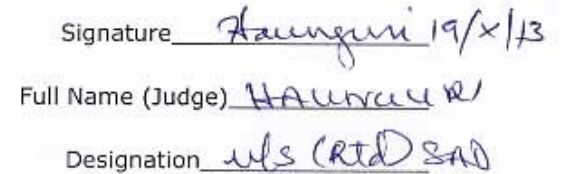 Signature Haunguri 19/X/13
Full Name (Judge) HAUNGURI
Designation U/S (Rtd) SAD